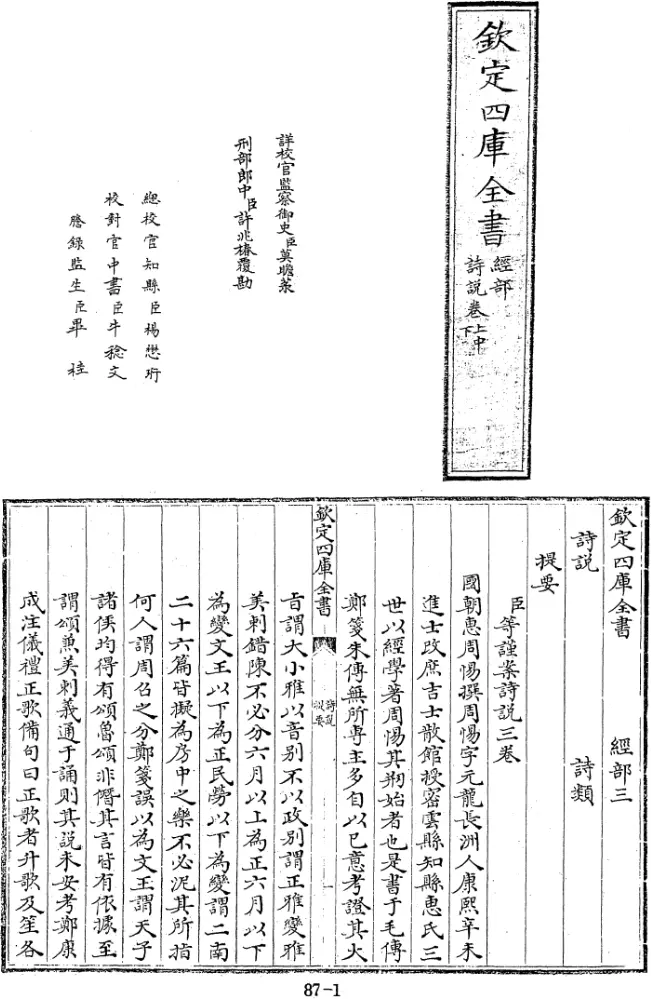 欽定四庫全書
經部
詩說卷上中下
詳校官監察御史臣莫瞻菉
刑部郎中臣許兆椿覆勘
總校官知縣臣楊懋珩
校對官中書臣牛稔文
謄錄監生臣畢桂
欽定四庫全書 經部三
詩說 詩類
提要
臣等謹案詩說三卷
國朝惠周惕撰周惕字元龍長洲人康熙辛未
進士改庶吉士散館授密雲縣知縣惠氏三
世以經學著周惕其剏始者也是書于毛傳
鄭箋朱傳無所專主多自以已意考證其大
欽定四庫全書
詩說
提要
旨謂大小雅以音别不以政别謂正雅變雅
美刺錯陳不必分六月以上為正六月以下
為變文王以下為正民勞以下為變謂二南
二十六篇皆擬為房中之樂不必泥其所指
何人謂周召之分鄭箋誤以為文王謂天子
諸侯均得有頌魯頌非僭其言皆有依據至
謂頌兼美刺義通于誦則其說未安考鄭康
成注儀禮正歌備句曰正歌者升歌及笙各
87-1